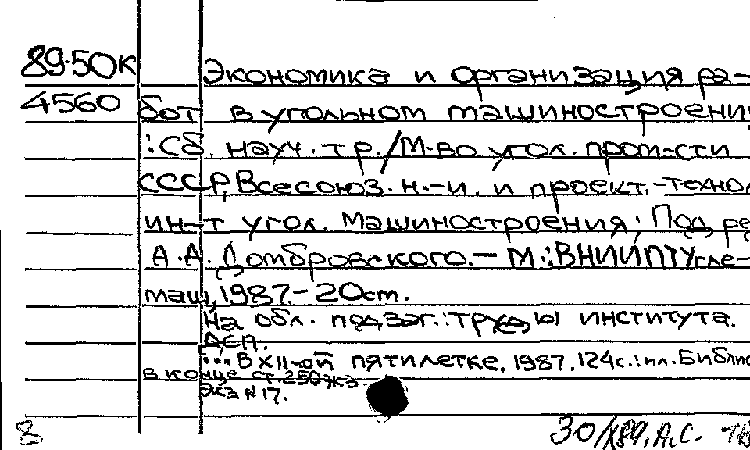 89-50К Экономика и организация ра-
4560 бот в угольном машиностроени
: Сб. науч. тр./М-во угол. пром-сти
СССР, Всесоюз. н.-и. и проект.-технол
ин-т угол. машиностроения; Под ре
А.А. Домбровского. – М.: ВНИИПТУгле-
маш, 1987. – 20см.
На обл. подзаг.: труды института.
ДСП.
... В XII-ой пятилетке, 1987, 124с.: ил. Библио
в конце ст. 250экз
Экз N 17.
8 30/X89. А.С.